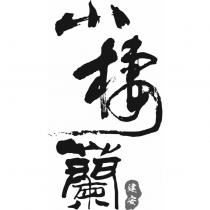 小樓蘭
建安